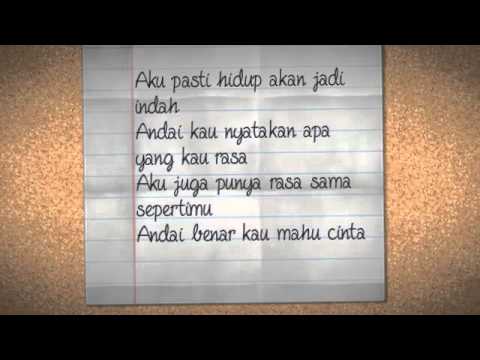 Aku pasti hidup akan jadi
indah
Andai kau nyatakan apa
yang kau rasa
Aku juga punya rasa sama
sepertimu
Andai benar kau mahu cinta